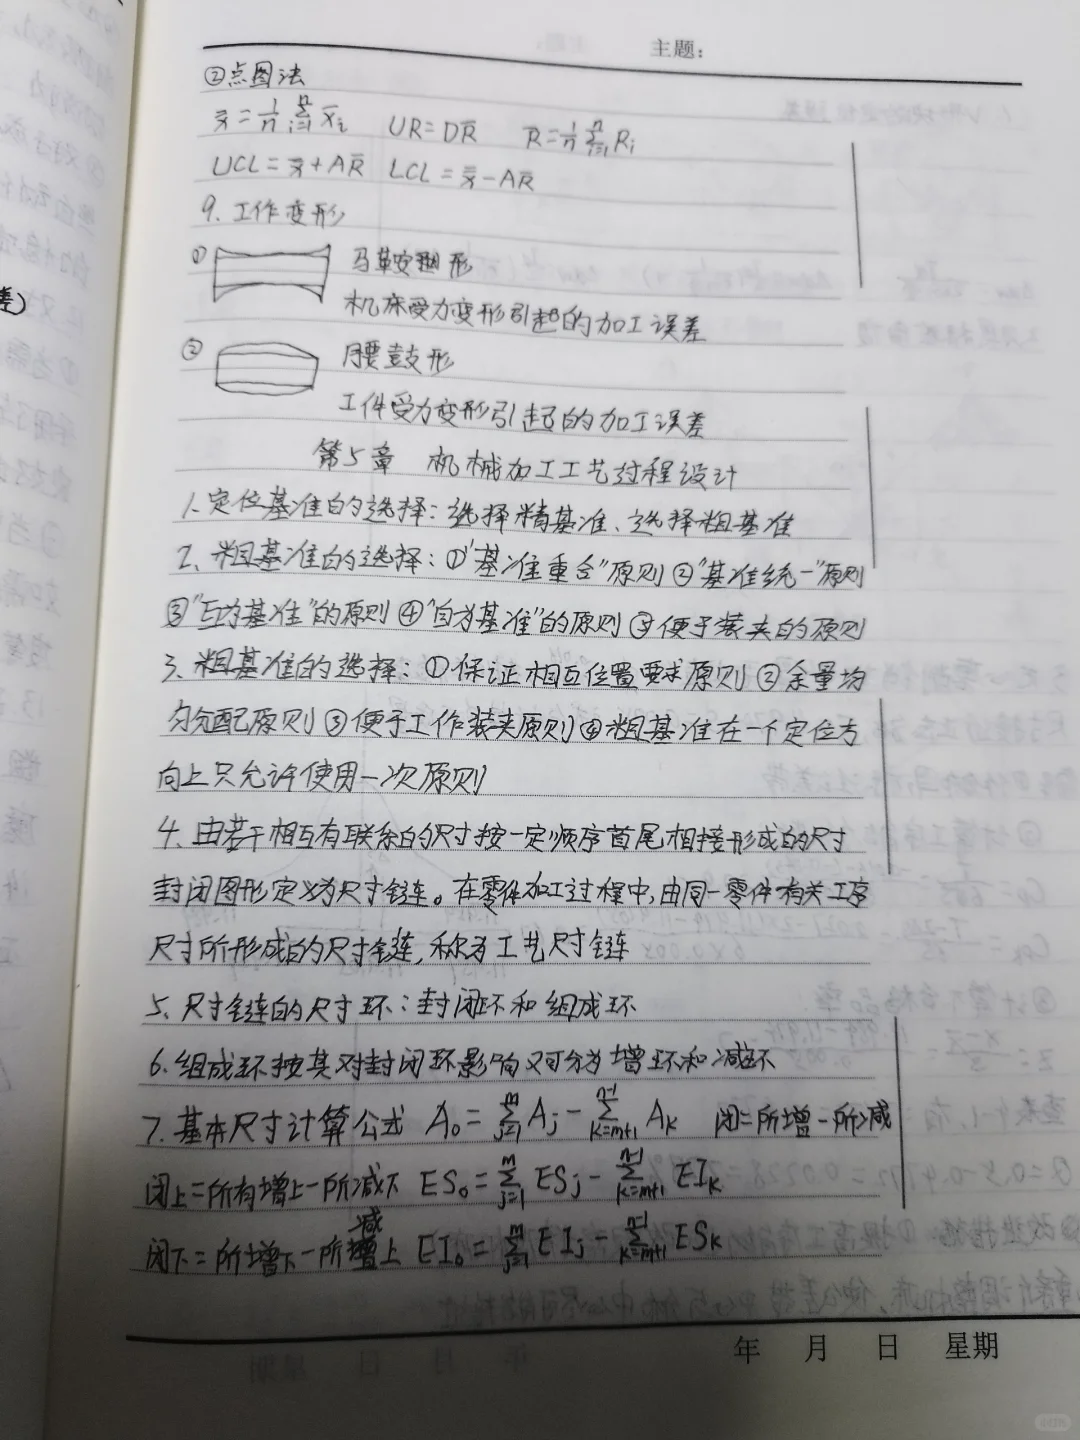 主题:
②点图法
x̿ = 1/n Σ(i=1→n) x̄ᵢ  UR = DR̄  R̄ = 1/n Σ(i=1→n) Rᵢ
UCL = x̿ + AR̄  LCL = x̿ - AR̄
9. 工作变形
① 马鞍形
机床受力变形引起的加工误差
② 腰鼓形
工件受力变形引起的加工误差
第5章 机械加工工艺过程设计
1. 定位基准的选择: 选择精基准、选择粗基准
2. 粗基准的选择: ①"基准重合"原则 ②"基准统一"原则
③"互为基准"的原则 ④"自为基准"的原则 ⑤便于装夹的原则
3. 粗基准的选择: ①保证相互位置要求原则 ②余量均
匀分配原则 ③便于工作装夹原则 ④粗基准在一个定位方
向上只允许使用一次原则
4. 由若干相互有联系的尺寸按一定顺序首尾相接形成的尺寸
封闭图形定义为尺寸链。在零件加工过程中,由同一零件有关工序
尺寸所形成的尺寸链,称为工艺尺寸链
5. 尺寸链的尺寸环: 封闭环和组成环
6. 组成环按其对封闭环影响又可分为增环和减环
7. 基本尺寸计算公式 A₀ = Σ(j=1→m) Aⱼ - Σ(k=m+1→n-1) Aₖ 闭=所增-所减
闭上=所有增上-所减下 ES₀ = Σ(j=1→m) ESⱼ - Σ(k=m+1→n-1) EIₖ
闭下=所增下-所减上 EI₀ = Σ(j=1→m) EIⱼ - Σ(k=m+1→n-1) ESₖ
年 月 日 星期
差)